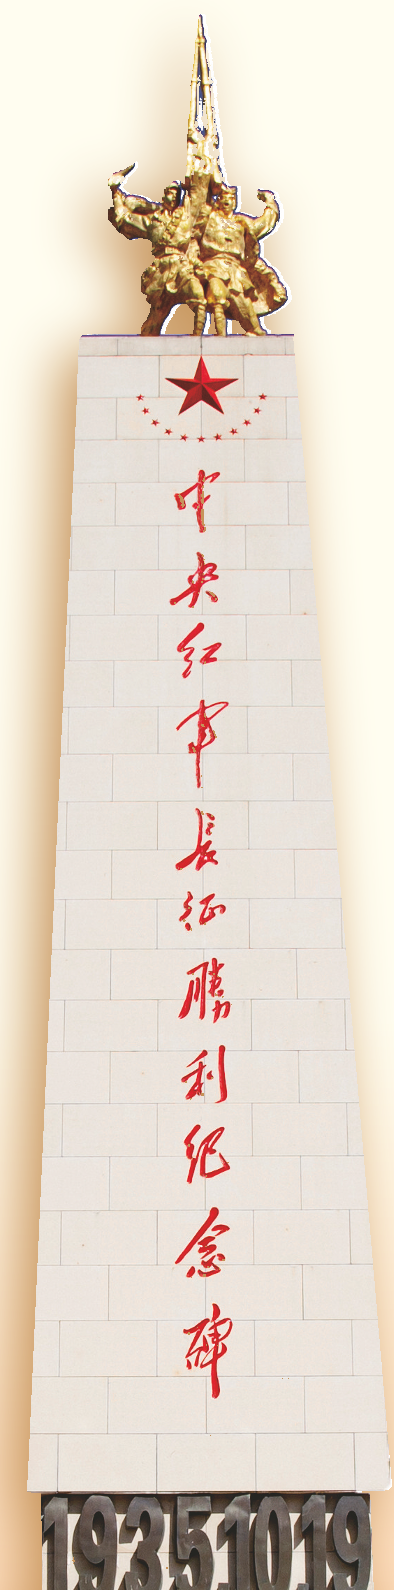 中央红军長征勝利纪念碑
19351019